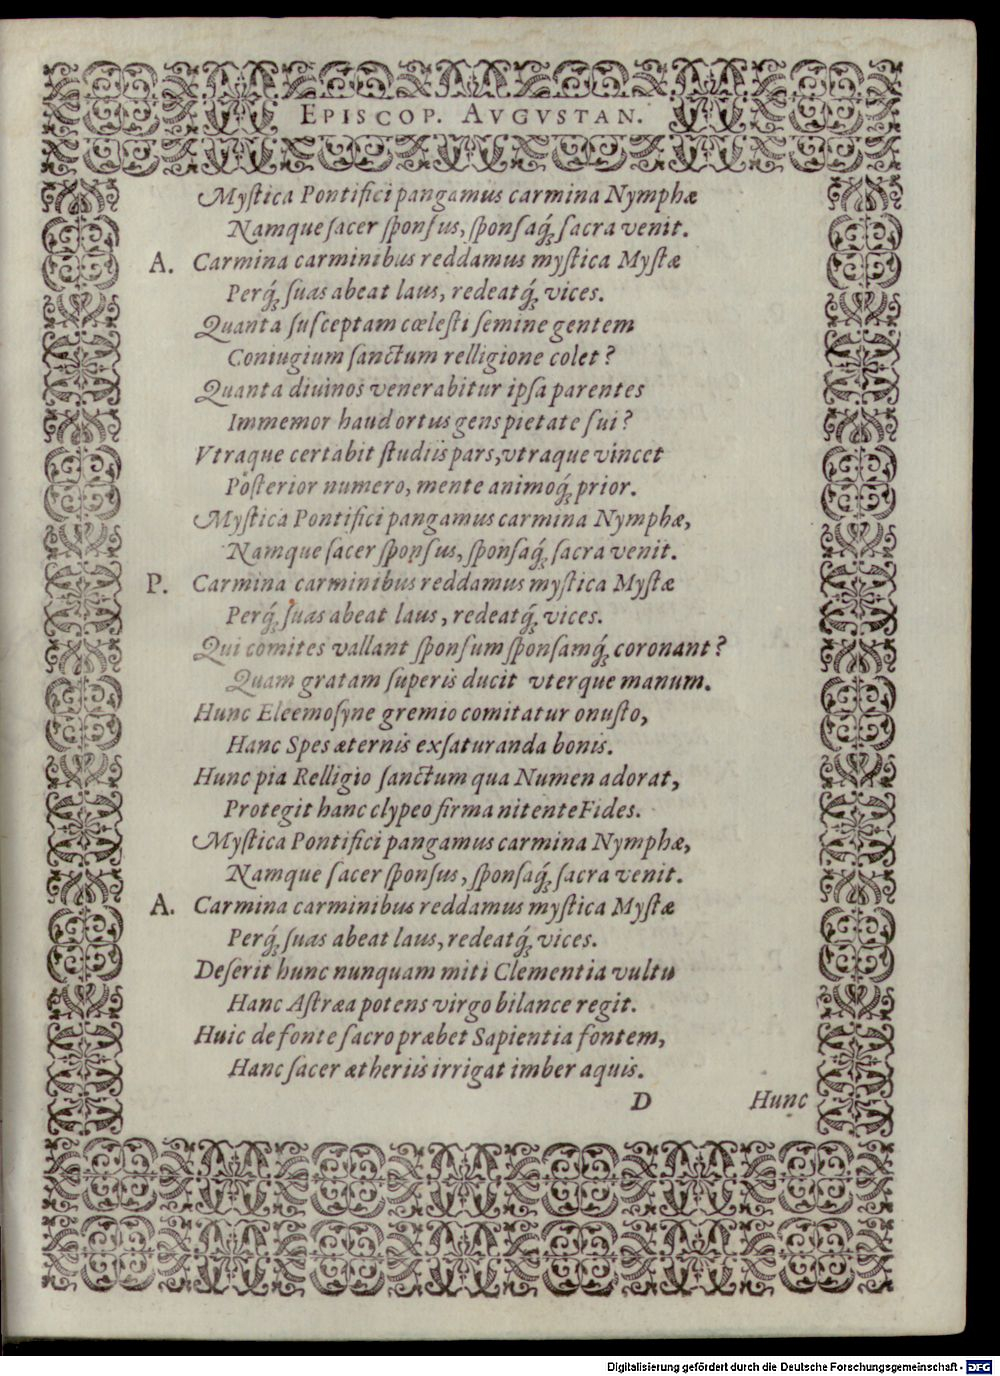 EPISCOP. AVGVSTAN.
Myſtica Pontifici pangamus carmina Nymphæ
Namque ſacer ſponſus, ſponſaq́; ſacra venit.
A. Carmina carminibus reddamus myſtica Myſtæ
Perq́; ſuas abeat laus, redeatq́; vices.
Quanta ſuſceptam cœleſti ſemine gentem
Coniugium ſanctum relligione colet?
Quanta diuinos venerabitur ipſa parentes
Immemor haud ortus gens pietate ſui?
Vtraque certabit ſtudiis pars, vtraque vincet
Poſterior numero, mente animoq́; prior.
Myſtica Pontifici pangamus carmina Nymphæ,
Namque ſacer ſponſus, ſponſaq́; ſacra venit.
P. Carmina carminibus reddamus myſtica Myſtæ
Perq́; ſuas abeat laus, redeatq́; vices.
Qui comites vallant ſponſum ſponſamq́; coronant?
Quam gratam ſuperis ducit vterque manum.
Hunc Eleemoſyne gremio comitatur onuſto,
Hanc Spes æternis exſaturanda bonis.
Hunc pia Relligio ſanctum qua Numen adorat,
Protegit hanc clypeo firma nitente Fides.
Myſtica Pontifici pangamus carmina Nymphæ,
Namque ſacer ſponſus, ſponſaq́; ſacra venit.
A. Carmina carminibus reddamus myſtica Myſtæ
Perq́; ſuas abeat laus, redeatq́; vices.
Deſerit hunc nunquam miti Clementia vultu
Hanc Aſtræa potens virgo bilance regit.
Huic de fonte ſacro præbet Sapientia fontem,
Hanc ſacer ætheriis irrigat imber aquis.
D Hunc
Digitalisierung gefördert durch die Deutsche Forschungsgemeinschaft - DFG